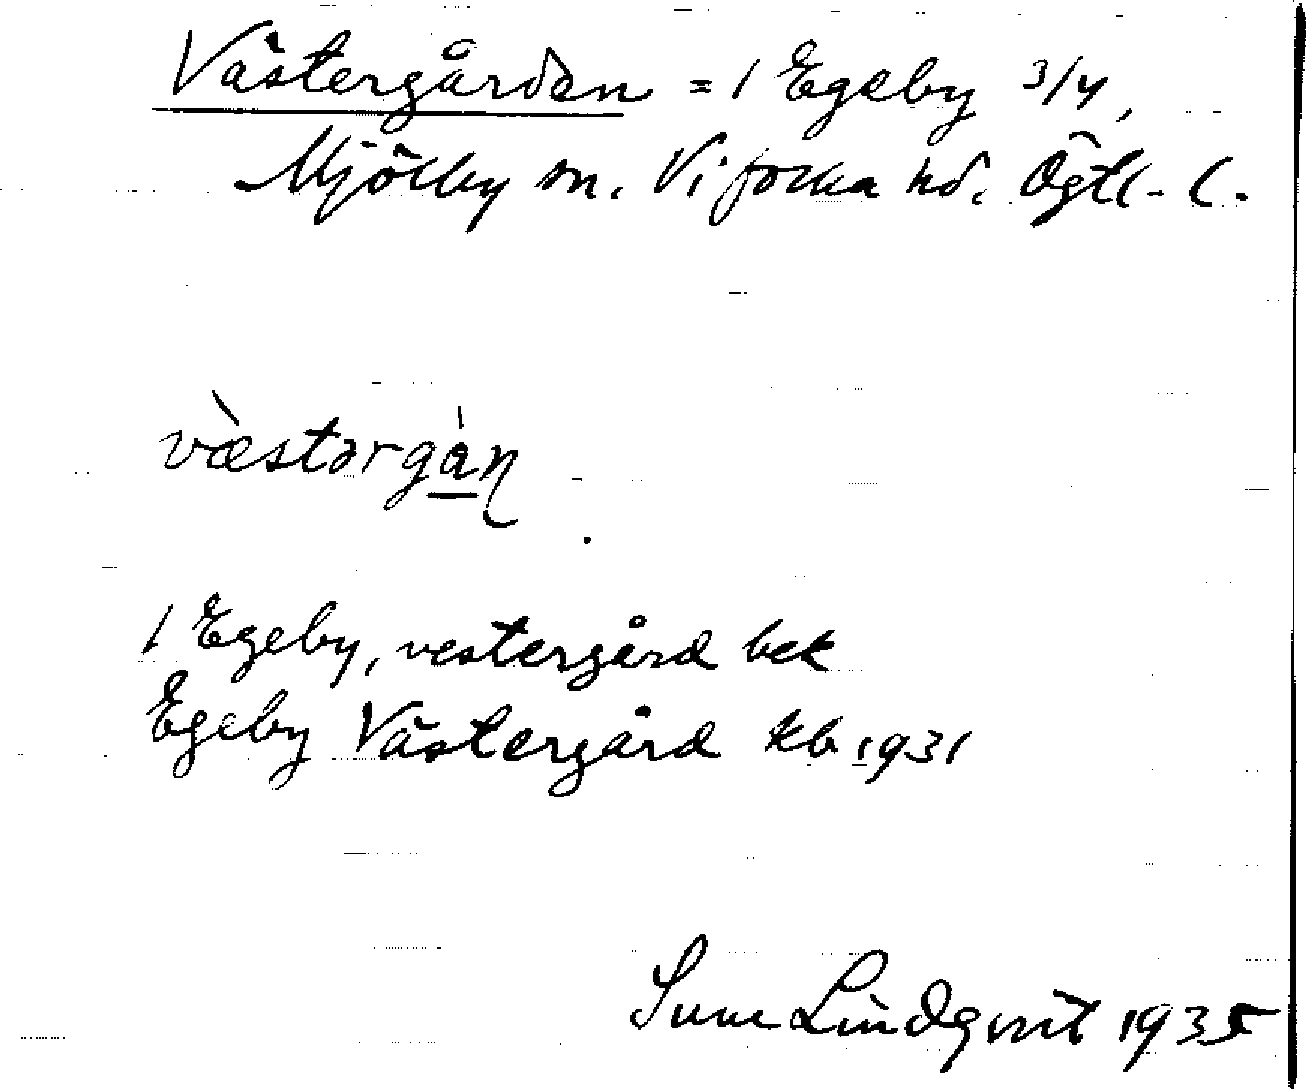 Västergården = 1 Egeby 3/4,
Mjölby sn. Vifolka hd. Ögtl. l.
vàestərgàṇ
1 Egeby, vestergård bek
Egeby Västergård kb 1931
Sune Lindqvist 1935